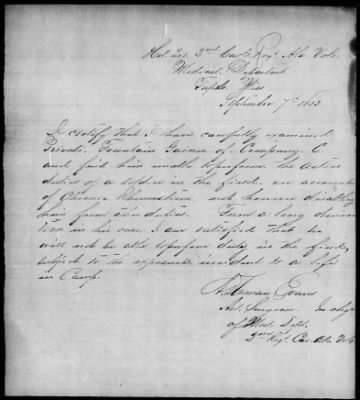 Hd. Qrs. 2nd Cav. Regt. Ala. Vols.
Medical Department
Miss
September 7th 1863
I certify that I have carefully examined
Private Fountain Gaines of Company C
and find him unable to perform the active
duties of a soldier in the field, on account
of Chronic Rheumatism, and hereon disability
him from duties. From a long observa-
tion in his case, I am satisfied that he
will not be able to perform duty in the field,
subject to the exposure incident to a life
in Camp.
Evans
Ast. Surgeon In chge
of Med. Dept.
2nd Regt. Cav Ala Vols